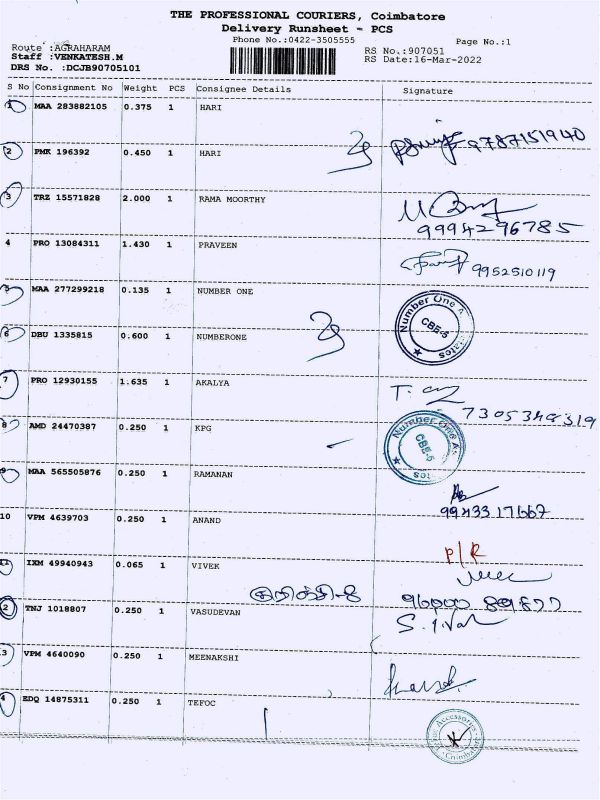 THE PROFESSIONAL COURIERS, Coimbatore
Delivery Runsheet - PCS
Phone No.:0422-3505555
Page No.:1
Route :AGRAHARAM
Staff :VENKATESH.M
DRS No. :DCJB90705101
RS No.:907051
RS Date:16-Mar-2022
S No Consignment No Weight PCS Consignee Details Signature
1 MAA 283882105 0.375 1 HARI
9787151940
2 PMK 196392 0.450 1 HARI
3 TRZ 15571828 2.000 1 RAMA MOORTHY
9994296785
4 PRO 13084311 1.430 1 PRAVEEN
9952510119
5 MAA 277299218 0.135 1 NUMBER ONE
Number One
CBE-5
6 DBU 1335815 0.600 1 NUMBERONE
7 PRO 12930155 1.635 1 AKALYA
7305348319
8 AMD 24470387 0.250 1 KPG
Number One
CBE-5
9 MAA 565505876 0.250 1 RAMANAN
9943317667
10 VPM 4639703 0.250 1 ANAND
P/R
11 IXM 49940943 0.065 1 VIVEK
2 TNJ 1018807 0.250 1 VASUDEVAN
3 VPM 4640090 0.250 1 MEENAKSHI
4 EDQ 14875311 0.250 1 TEFOC
Accessories
Coimbatore